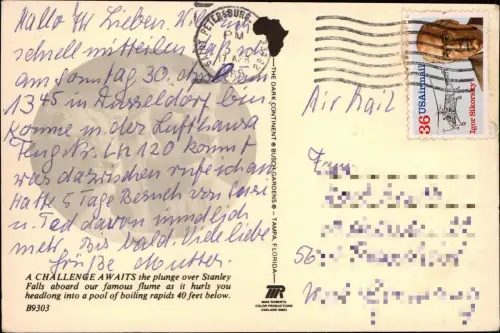 Hallo Ihr Lieben. Will
schnell mitteilen daß ich
am Sonntag 30.
13 45 in Düsseldorf bin.
Komme in der Lufthansa
Flug Nr. LH 120 kommt
was dazwischen rufe ich an.
Hatte 5 Tage Besuch von
u. Ted davon mündlich
mehr. Bis bald. Viele liebe
Grüße Mutter.
A CHALLENGE AWAITS the plunge over Stanley
Falls aboard our famous flume as it hurls you
headlong into a pool of boiling rapids 40 feet below.
B9303
THE DARK CONTINENT ® BUSCH GARDENS ® – TAMPA, FLORIDA
MIKE ROBERTS
COLOR PRODUCTIONS
OAKLAND 94623
PETERSBURG
PM
Air Mail
36 USAirmail
Igor Sikorsky
56
West Germany